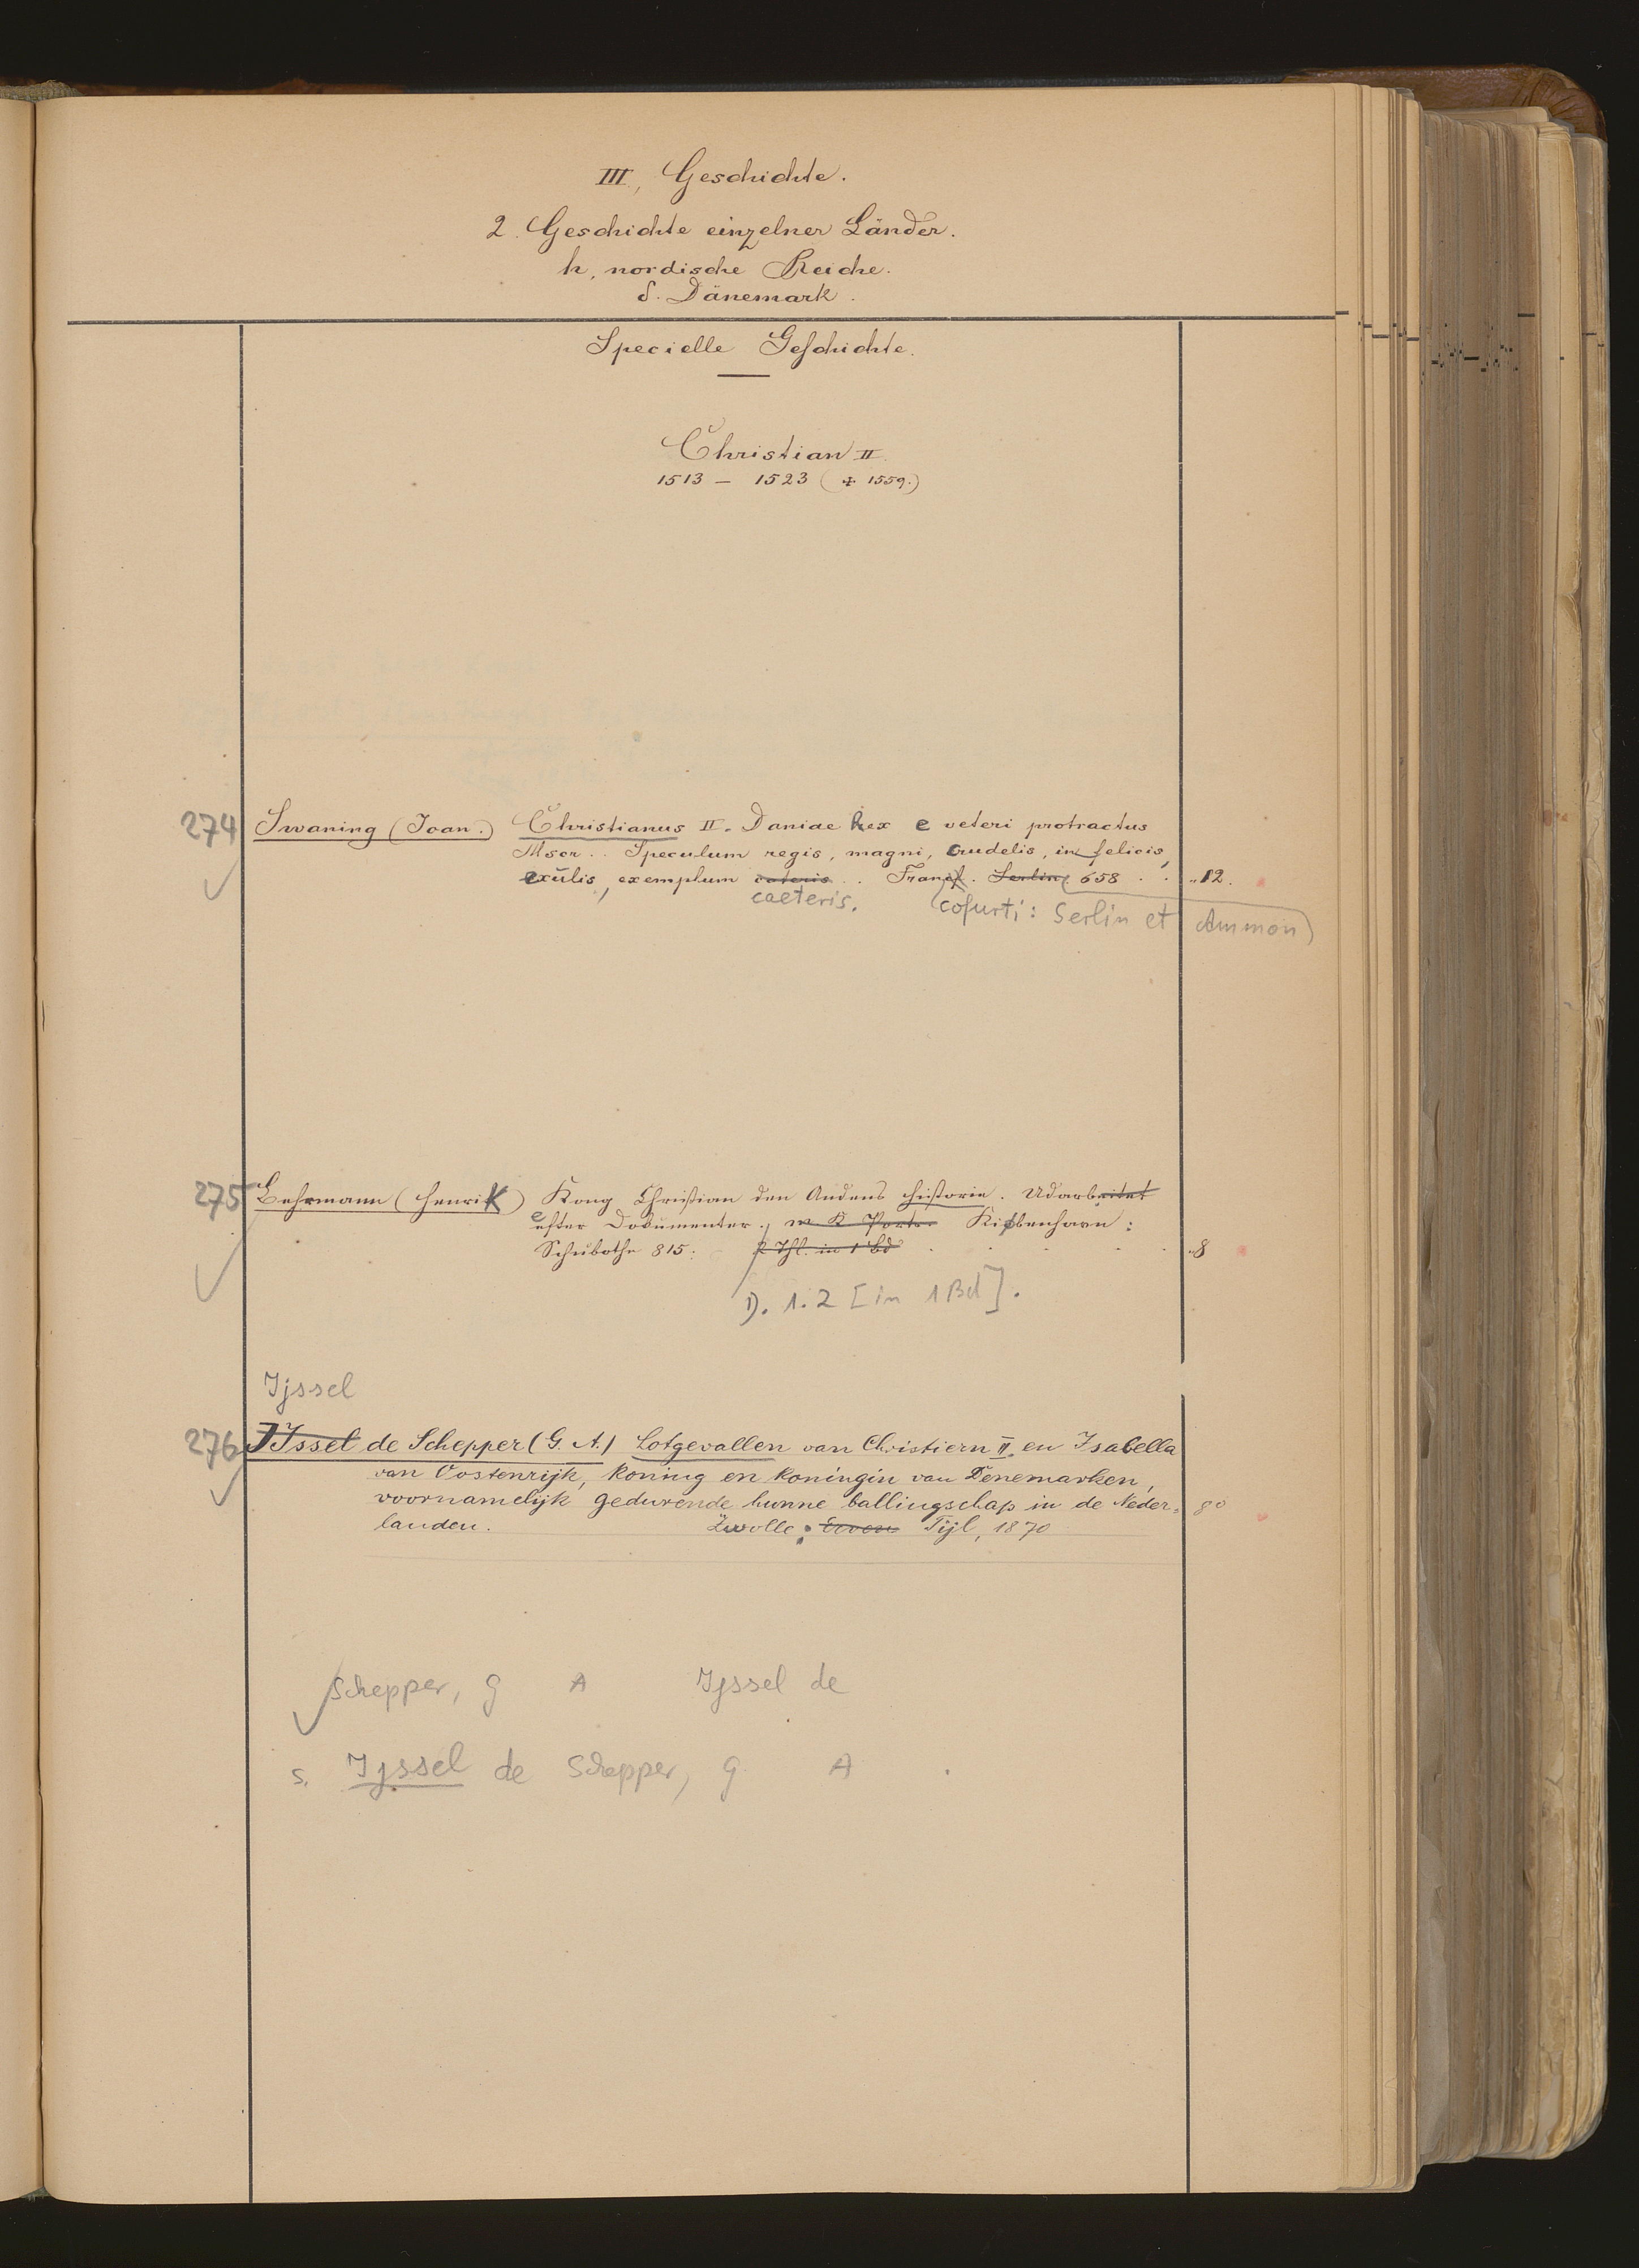 III, Geschichte.
2. Geschichte einzelner Länder.
h, nordische Reiche.
δ. Dänemark.
Specielle Geschichte.
Christian II.
1513 – 1523 (+ 1559.)
274 Swaning (Joan.) Christianus II. Daniae Rex e veteri protractus
Mscr.. Speculum regis, magni, crudelis, infelicis,
exulis, exemplum cateris.. Francf. Serlin, 658 . . „12.
caeteris. (cofurti: Serlin et Ammon)
275 Behrmann (Henrik) Kong Christian den Andens Historie. Udarbeitet
efter Documenter., m. K. Portr. Kiøbenhavn:
Schubothe 815: 2 Thl. in 1 Bd . . . . . „8
D. 1. 2 [in 1 Bd].
Ijssel
276 IJssel de Schepper (G. A.) Lotgevallen van Christiern II. en Isabella
van Oostenrijk, koning en koningin van Denemarken,
voornamelijk gedurende hunne ballingschap in de Neder= 8°
landen. Zwolle: Erven Tijl, 1870
Schepper, G A Ijssel de
s. Ijssel de Schepper, G A .